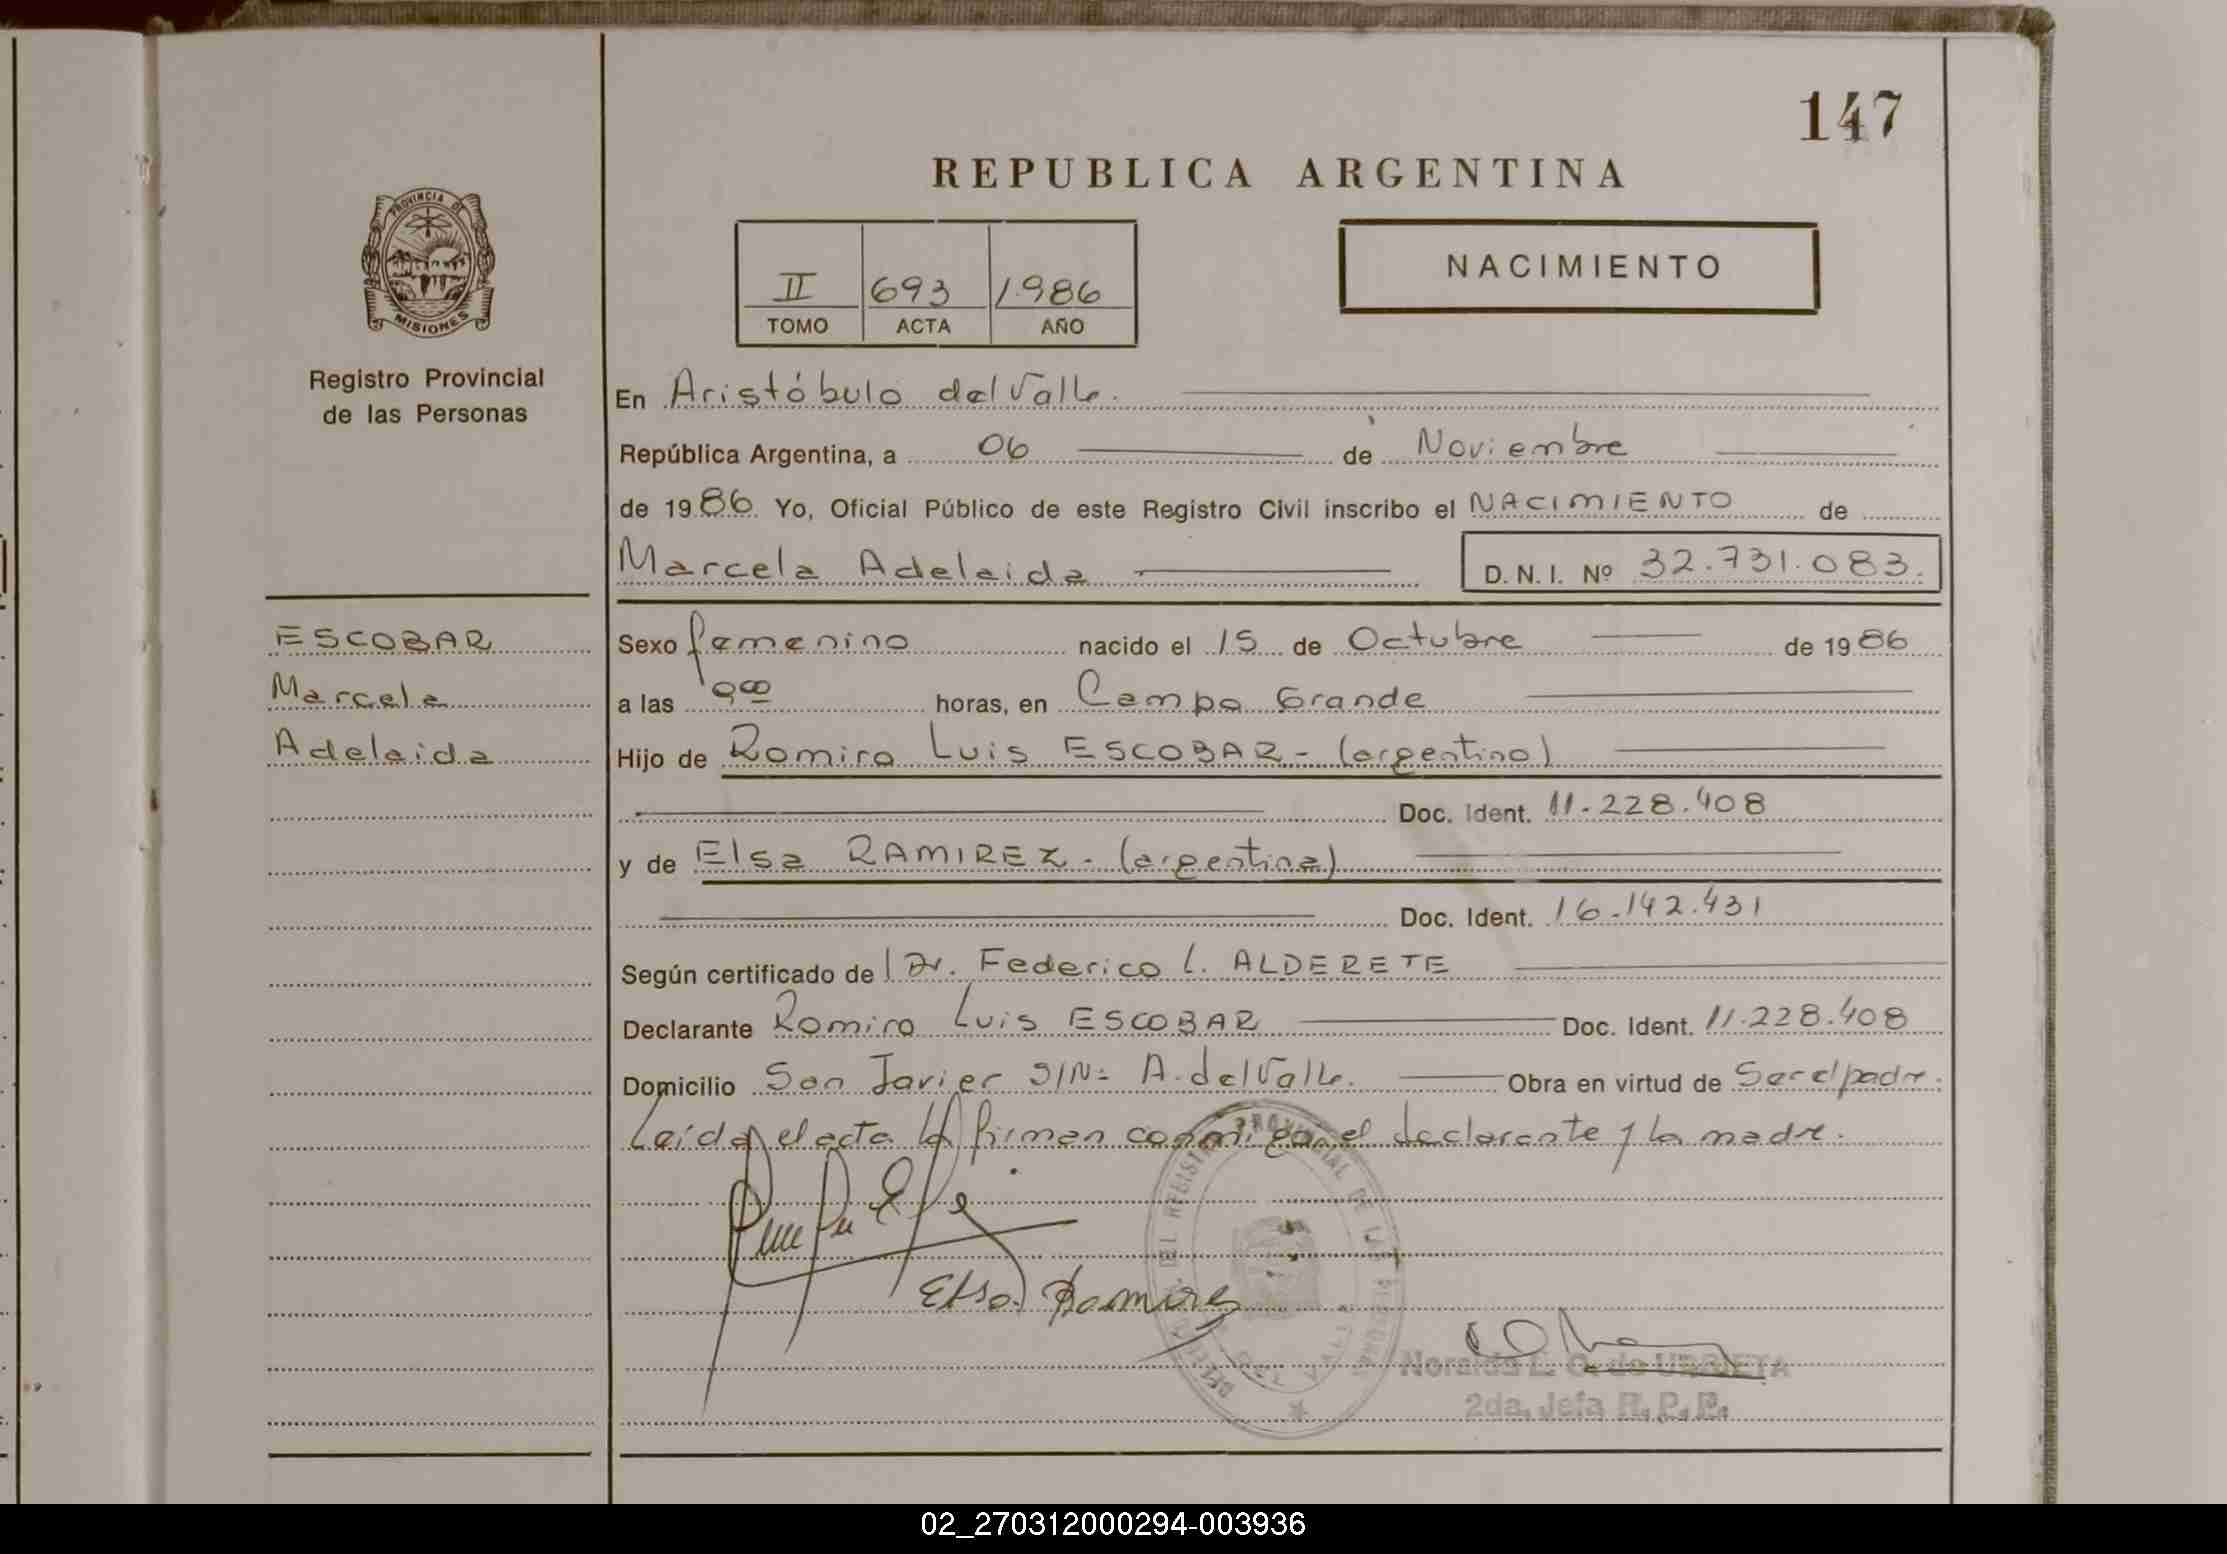 147
REPUBLICA ARGENTINA
PROVINCIA DE
MISIONES
Registro Provincial
de las Personas
II 693 1986
TOMO ACTA AÑO
NACIMIENTO
En Aristóbulo del Valle.
República Argentina, a 06 de Noviembre
de 1986. Yo, Oficial Público de este Registro Civil inscribo el NACIMIENTO de
Marcela Adelaida D.N.I. Nº 32.731.083.
ESCOBAR
Marcela
Adelaida
Sexo femenino nacido el 15 de Octubre de 1986
a las 9 00 horas, en Campo Grande
Hijo de Romiro Luis ESCOBAR - (argentino)
Doc. Ident. 11.228.408
y de Elsa RAMIREZ - (argentina)
Doc. Ident. 16.142.431
Según certificado de Dr. Federico L. ALDERETE
Declarante Romiro Luis ESCOBAR Doc. Ident. 11.228.408
Domicilio San Javier S/Nº A. del Valle. Obra en virtud de Ser el padre.
Leída el acta la firman conmigo el declarante y la madre.
Elsa Ramires
DEL REGISTRO PROVINCIAL DE LAS PERSONAS
Noralda E. O. de URRIETA
2da. Jefa R. P. P.
02_270312000294-003936